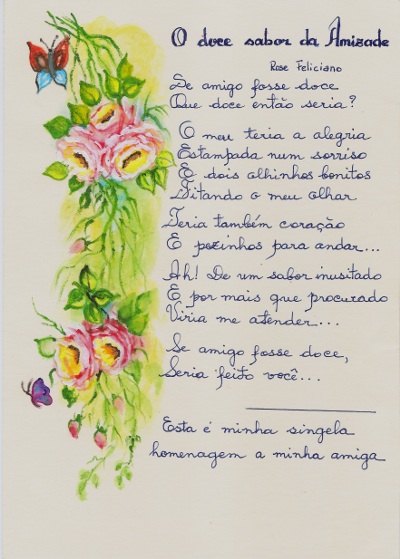 O doce sabor da Amizade
Rose Feliciano
Se amigo fosse doce
Que doce então seria?
O meu teria a alegria
Estampada num sorriso
E dois olhinhos bonitos
Fitando o meu olhar
Teria também coração
E pezinhos para andar...
Ah! De um sabor inusitado
E por mais que procurado
Viria me atender...
Se amigo fosse doce,
Seria feito você...
Esta é minha singela
homenagem a minha amiga